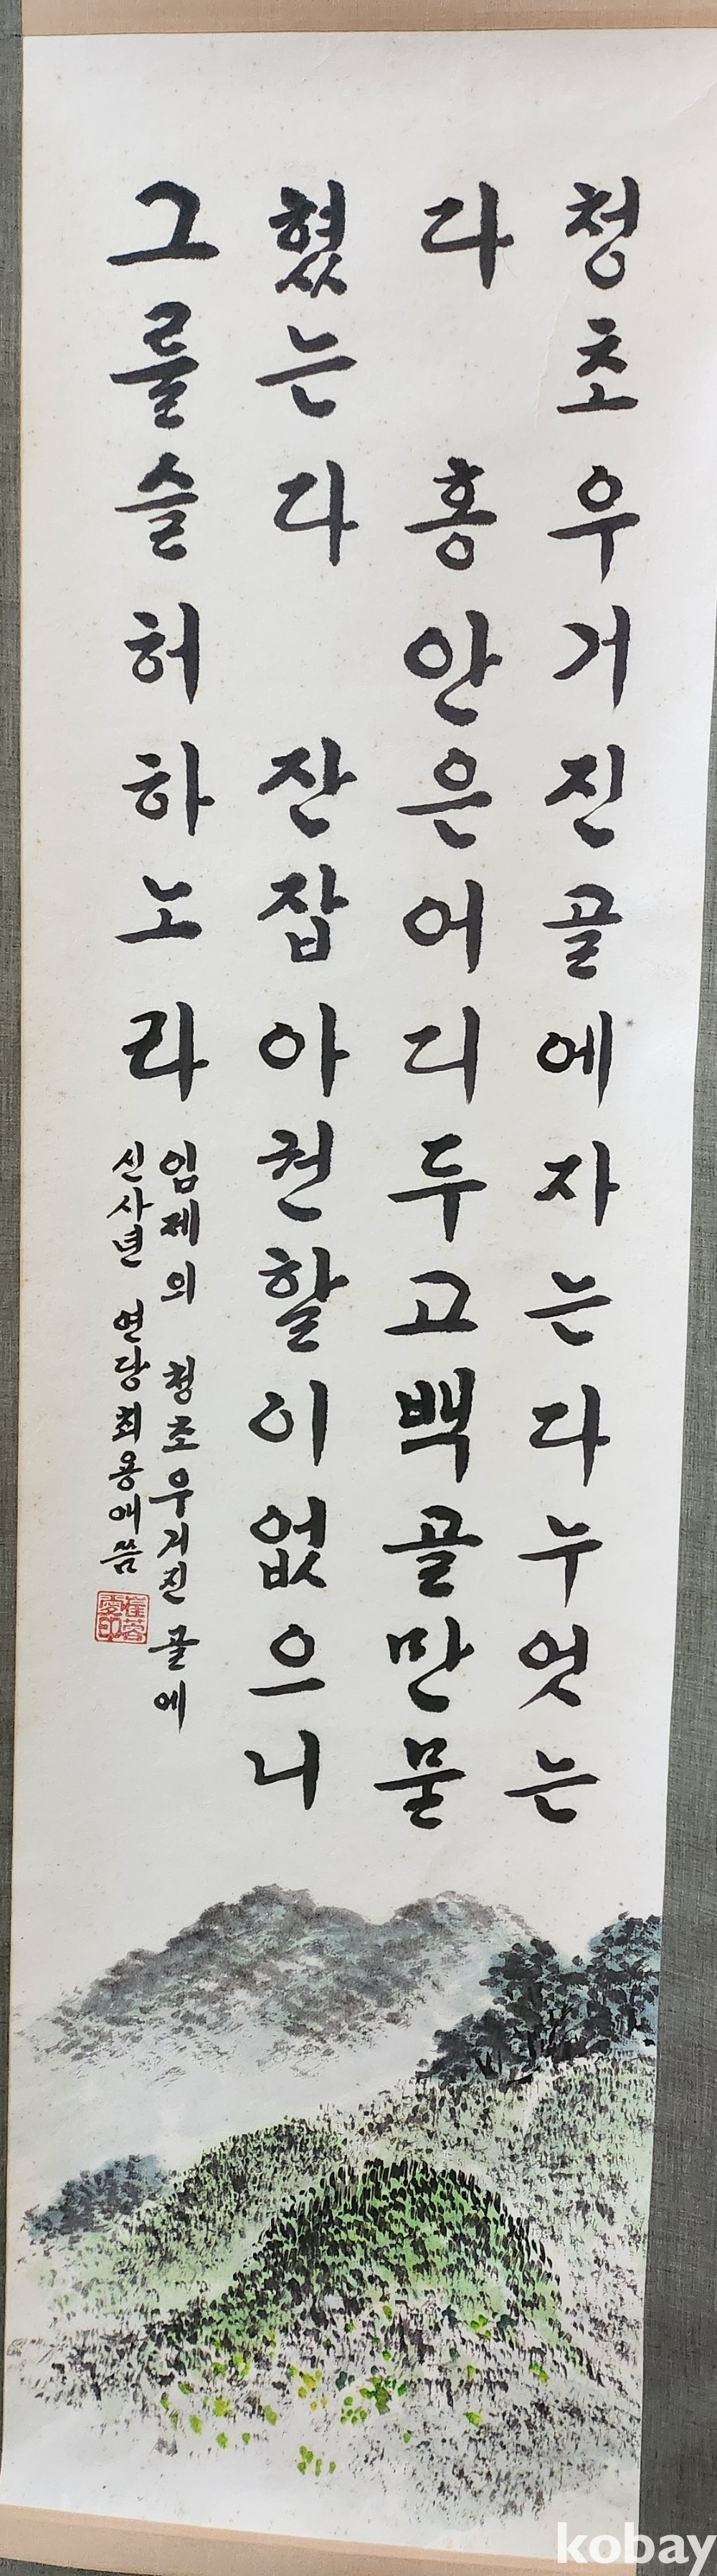 청초우거진골에자는다누엇는
다 홍안은어디두고백골만물
혔는다 잔잡아권할이없으니
그를슬허하노라
임제의 청초우거진 골에
신사년 연당최용애씀
崔蓉愛印
kobay